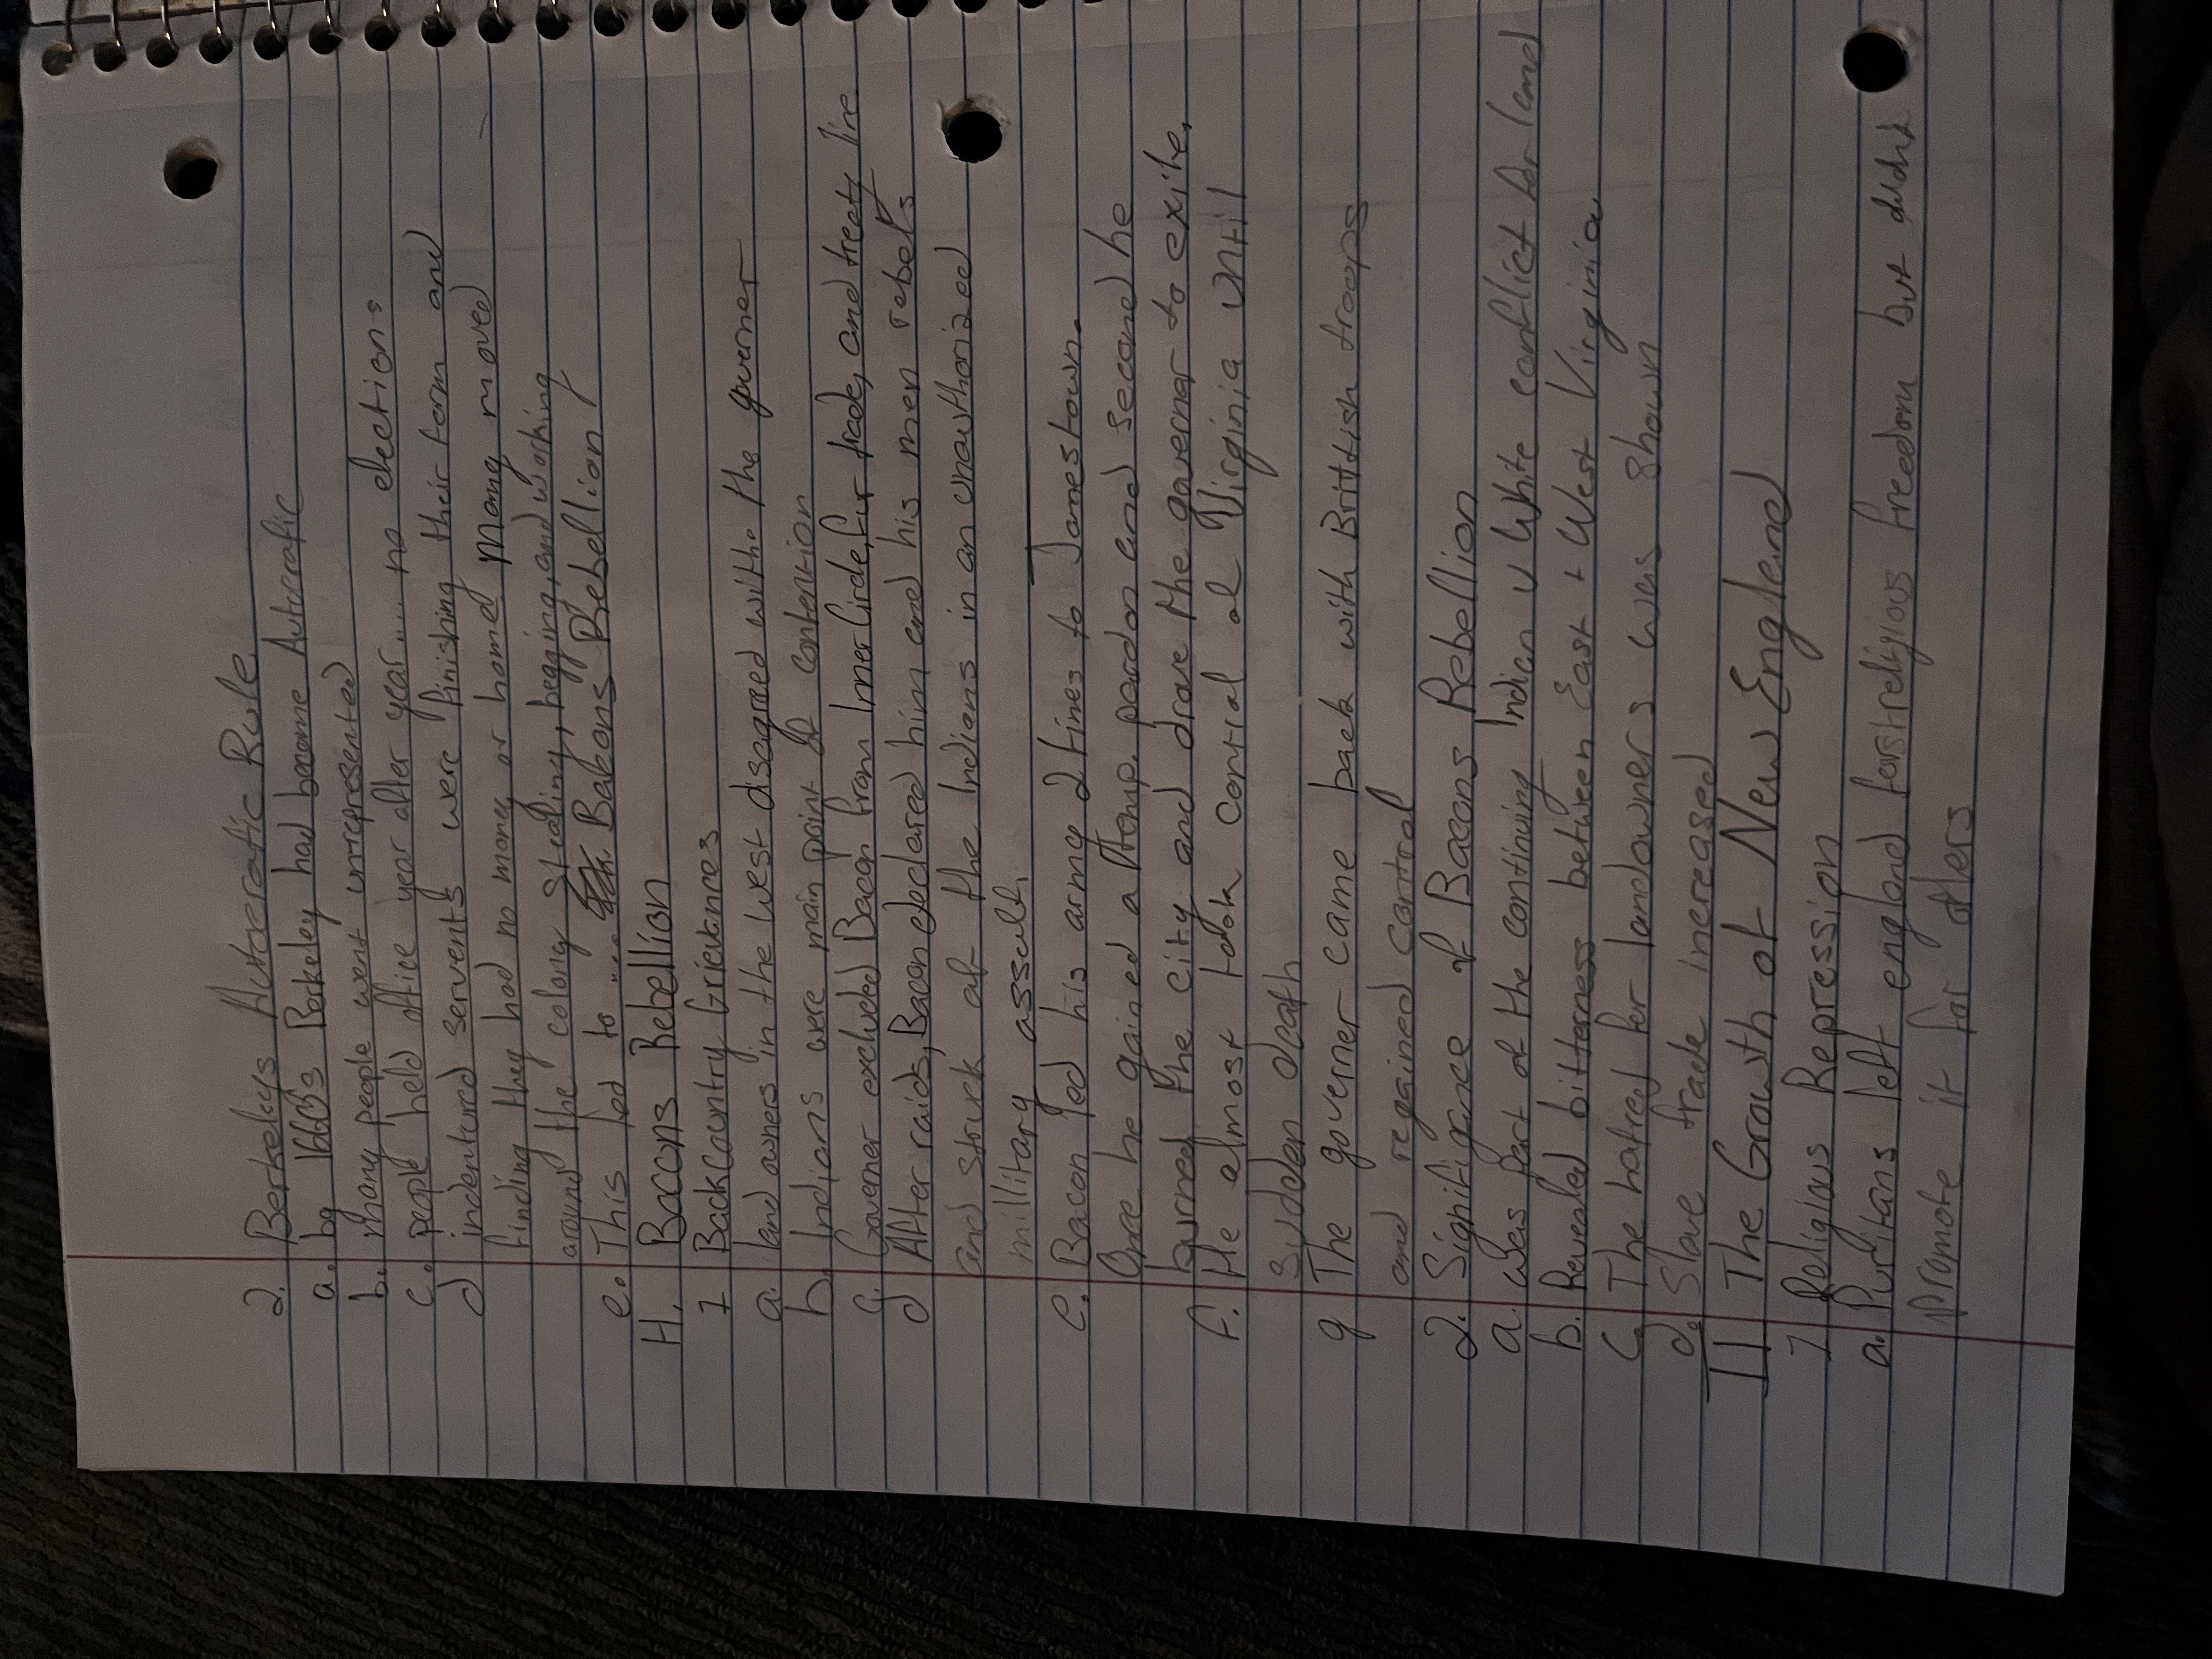 2. Berkeleys Autocratic Rule
a. by 1660's Berkeley had become Autocratic
b. many people went unrepresented
c. people held office year after year.... no elections
d indentured servents were finishing their term and
finding they had no money or home, Many moved
around the colony stealing, begging, and working
e. This led to .... Bakons Rebellion
H. Bacons Rebellion
1 Backcountry Grievances
a. land owners in the west disagreed with the governer
b. Indians were main point of contention
c. Governer excluded Bacon from Inner Circle, fur trade, and treaty line
d After raids, Bacon declared him and his men rebels
and struck at the Indians in an unauthorized
millitary assult.
e. Bacon led his army 2 times to Jamestown.
One he gained a pardon and second he
burned the city and drove the governor to exile.
f. He almost took control of Virginia until
sudden death
g The governer came back with Brittish troops
and regained control
2. Significance of Bacons Rebellion
a. was part of the continuing Indian v White conflict for land
b. Revealed bitterness between East + West Virginia
c The hatred for landowners was shown
d. Slave trade increased
II The Growth of New England
1 Religious Repression
a. Puritans left england for religious freedom but didnt
promote it for others